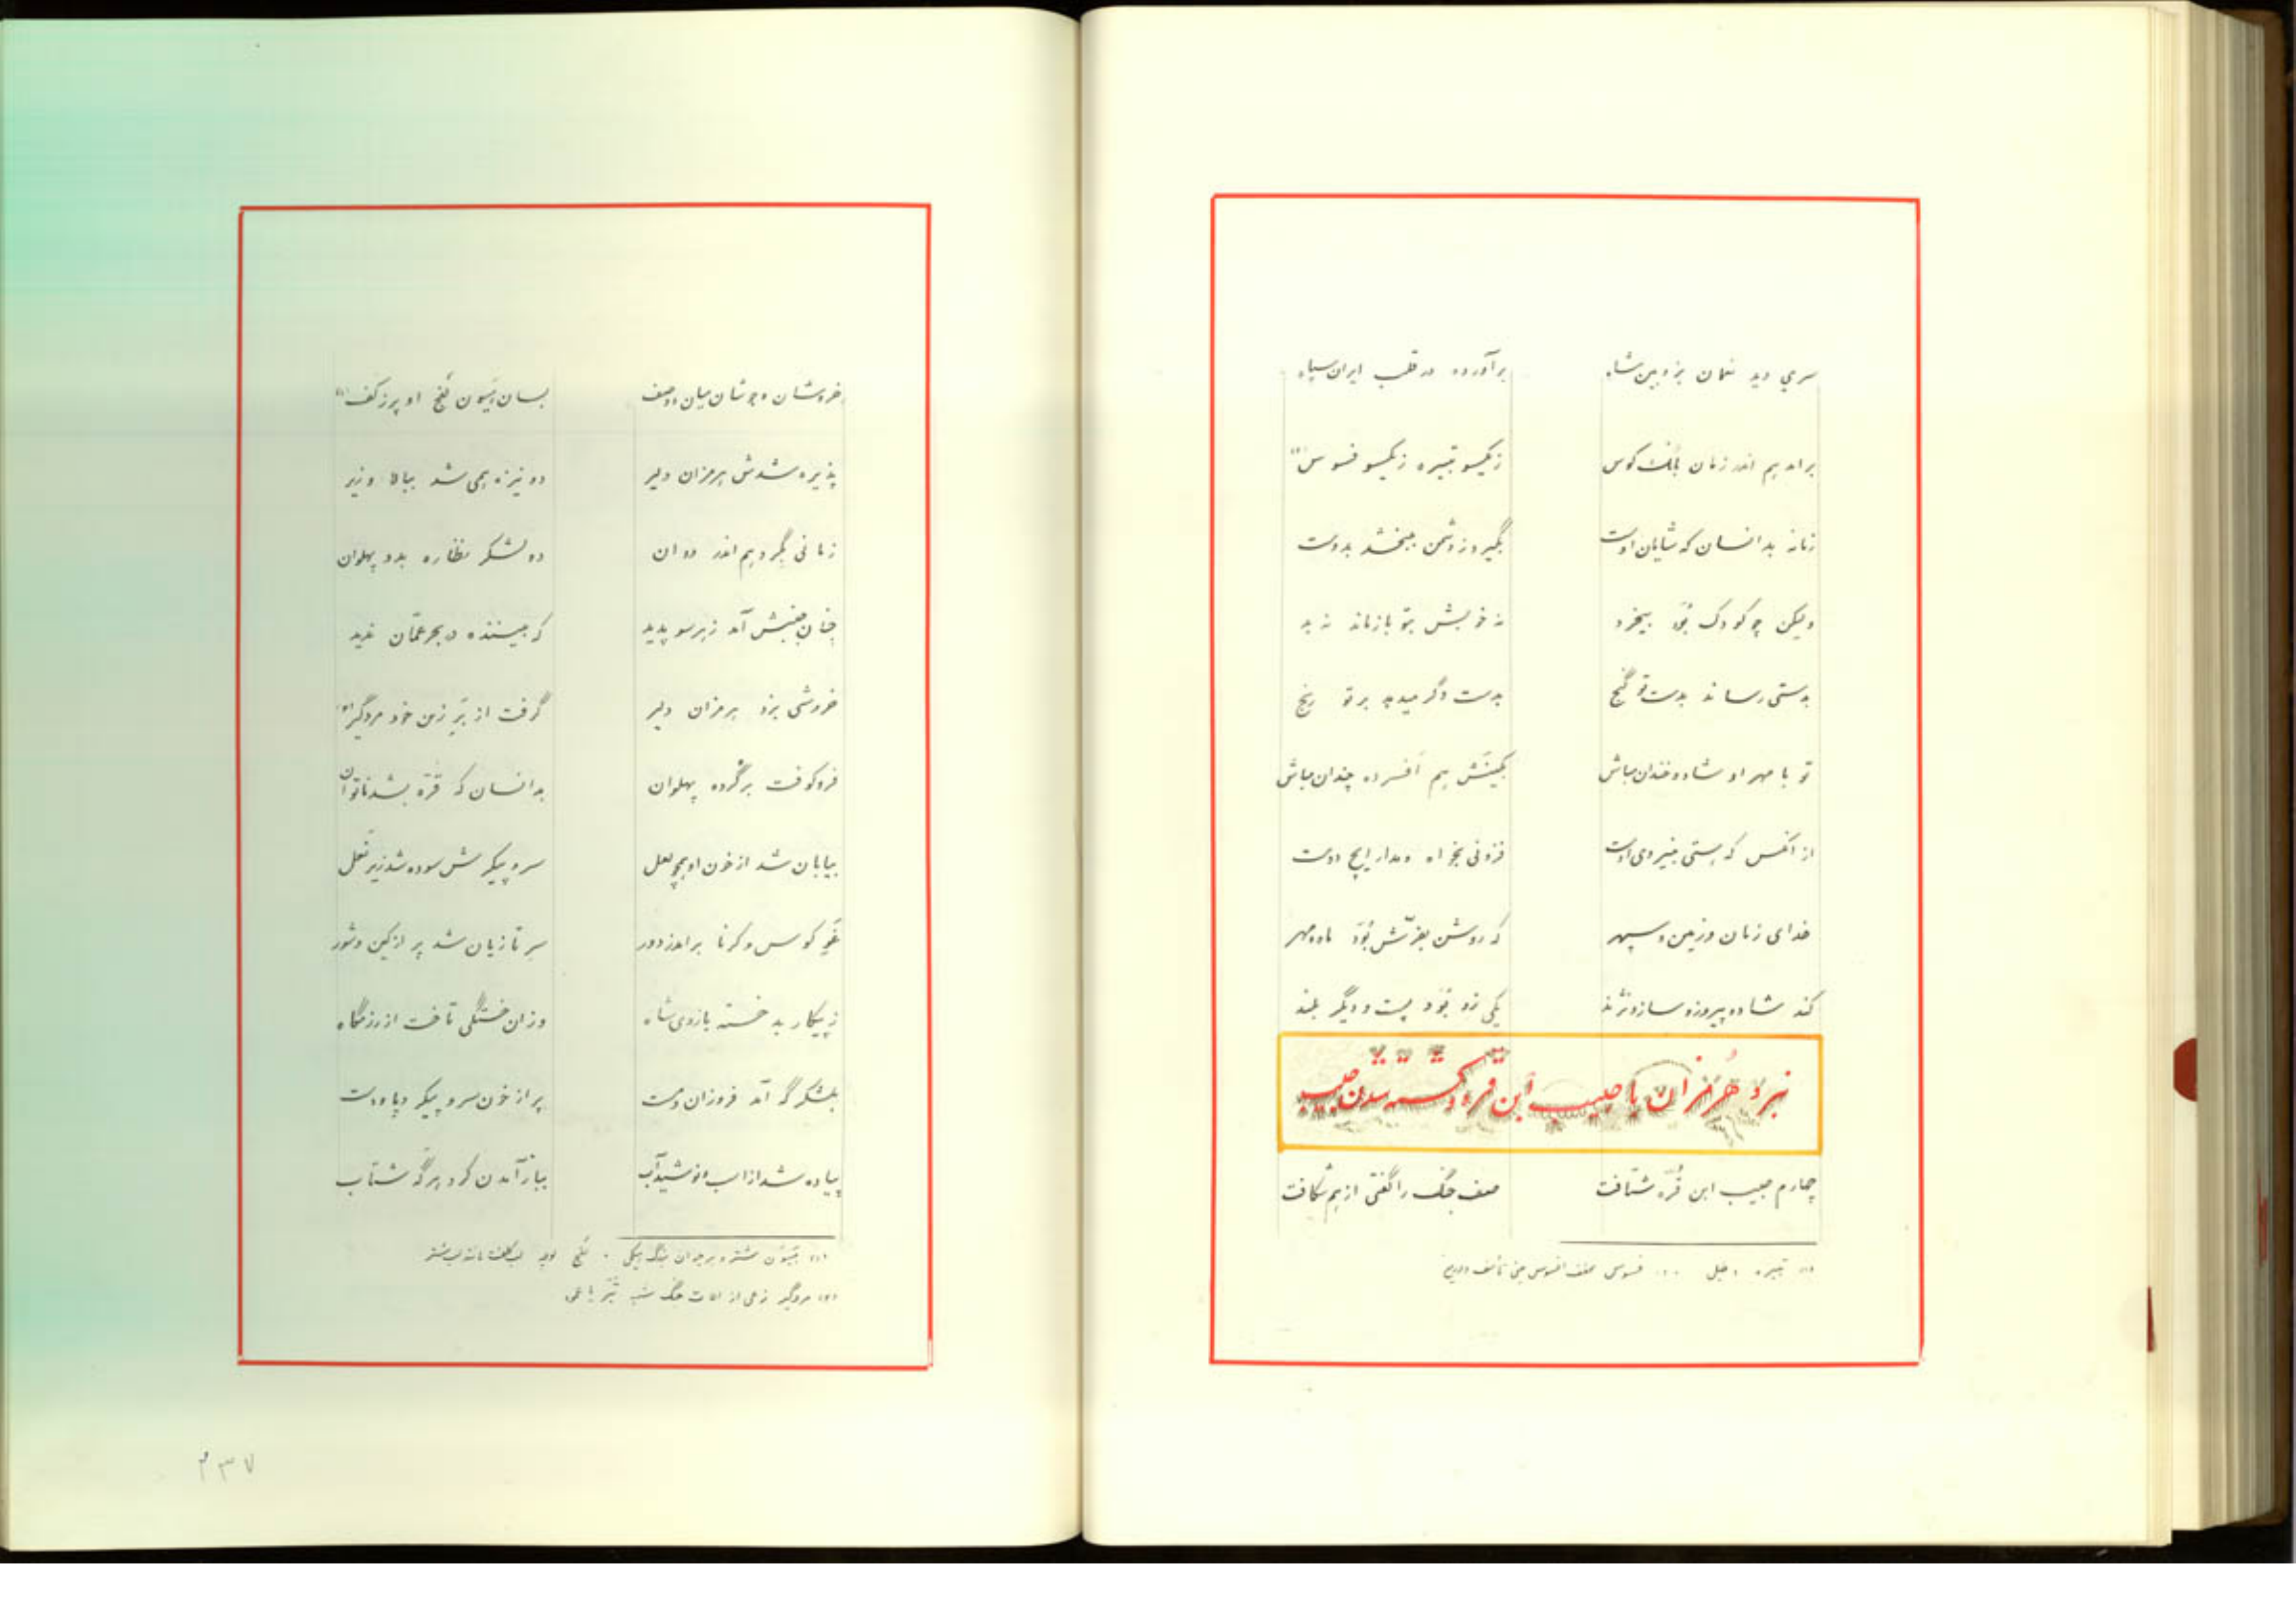 سری دید نعمان بزوبین شاه برآورده در قلب ایران سپاه
برآمد بهم اندر زمان بانگ کوس ز یکسو تبیره ز یکسو فسوس (۱)
زمانه بدانسان که شایان اوست بگیرد ز دشمن ببخشد بدوست
ولیکن چو کودک بُوَد بیخرد نه خوبش بتو باز ماند نه بد
بدستی رساند بدست تو گنج بدست دگر میدهد بر تو رنج
تو با مهر او شاد و خندان مباش بکینش هم افسرده چندان مباش
از آنکس که هستی بنیروی اوست فزونی بخواه و مدار ایچ دوست
خدای زمان و زمین و سپهر که روشن بفرّش بُوَد ماه و مهر
کند شاد و پیروز و ساز و نژند یکی زو بُوَد پست و دیگر بلند
نبرد هُرمُزان با حبیب اَبن قره و کشته شدن حبیب
چهارم حبیب ابن قُرّه شتافت صف جنگ را گفتی از هم شکافت
(۱) تبیره دهل فسوس مخفف افسوس یعنی تأسف و دریغ
خروشان و جوشان میان دو صف بسان هَیون لَفج او پر ز کف (۱)
پذیره شدش هرمزان دلیر دو نیزه همی شد ببالا و زیر
زمانی بگردیم اندر دوان دو لشکر نظاره بدو پهلوان
چنان جنبش آمد ز هر سو پدید که بیننده در بحر عمّان ندید
خروشی بزد هرمزان دلیر گرفت از بَرِ زین خود مردگیر (۲)
فرو کوفت بر گرده پهلوان بدانسان که قرّه بشد ناتوان
بیابان شد از خون او همچو لعل سر و پیکرش سوده شد زیر نعل
غَو کوس و کرنا برآمد ز دور سر تازیان شد پر از کین و شور
ز پیکار بد خسته بازوی شاه وزان خستگی تاخت از رزمگاه
بلشکرگه آمد فروزان دست پر از خون سر و پیکر و پا و دست
پیاده شد از اسب و نوشید آب بباز آمدن کرد بر گَه شتاب
(۱) هَیون شتر و هر حیوان بزرگ هیکل . لَفج لوچه لب کلفت مانند لب شتر
(۲) مردگیر نوعی از آلات جنگ شبیه
۲۳۷